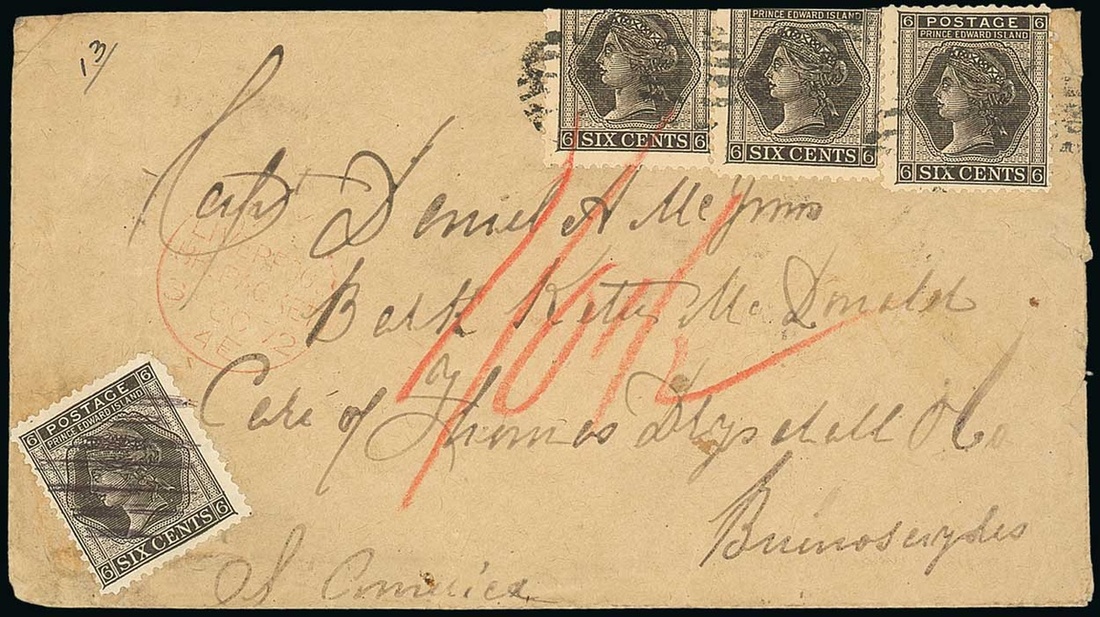 13/
PRINCE EDWARD ISLAND
6 SIX CENTS 6
PRINCE EDWARD ISLAND
6 SIX CENTS 6
6 POSTAGE 6
PRINCE EDWARD ISLAND
6 SIX CENTS 6
Capt Daniel A McGinnis
Bark Kate McDonald
Care of Thomas Drysdall & Co
Buinosayles
S. America
LIVERPOOL
OC 72
6 POSTAGE 6
PRINCE EDWARD ISLAND
6 SIX CENTS 6